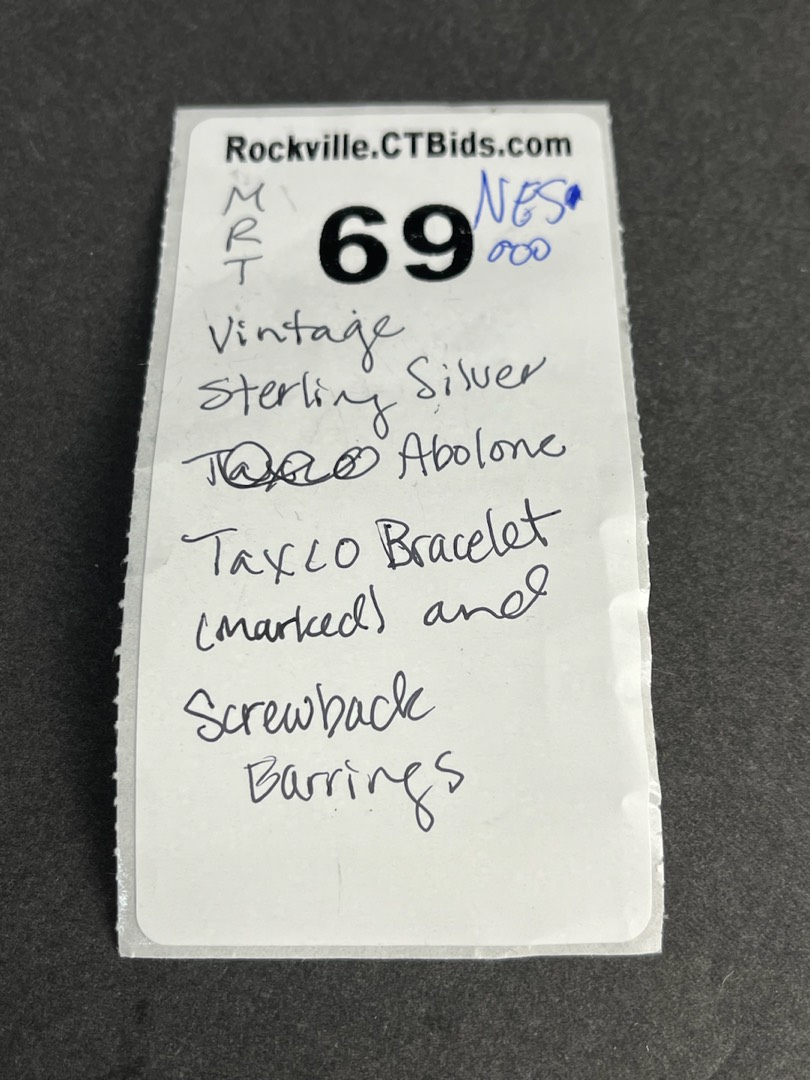 Rockville.CTBids.com
M
R
T
69
NES
000
Vintage
Sterling Silver
Taxco Abolone
Taxco Bracelet
(marked) and
Screwback
Earrings